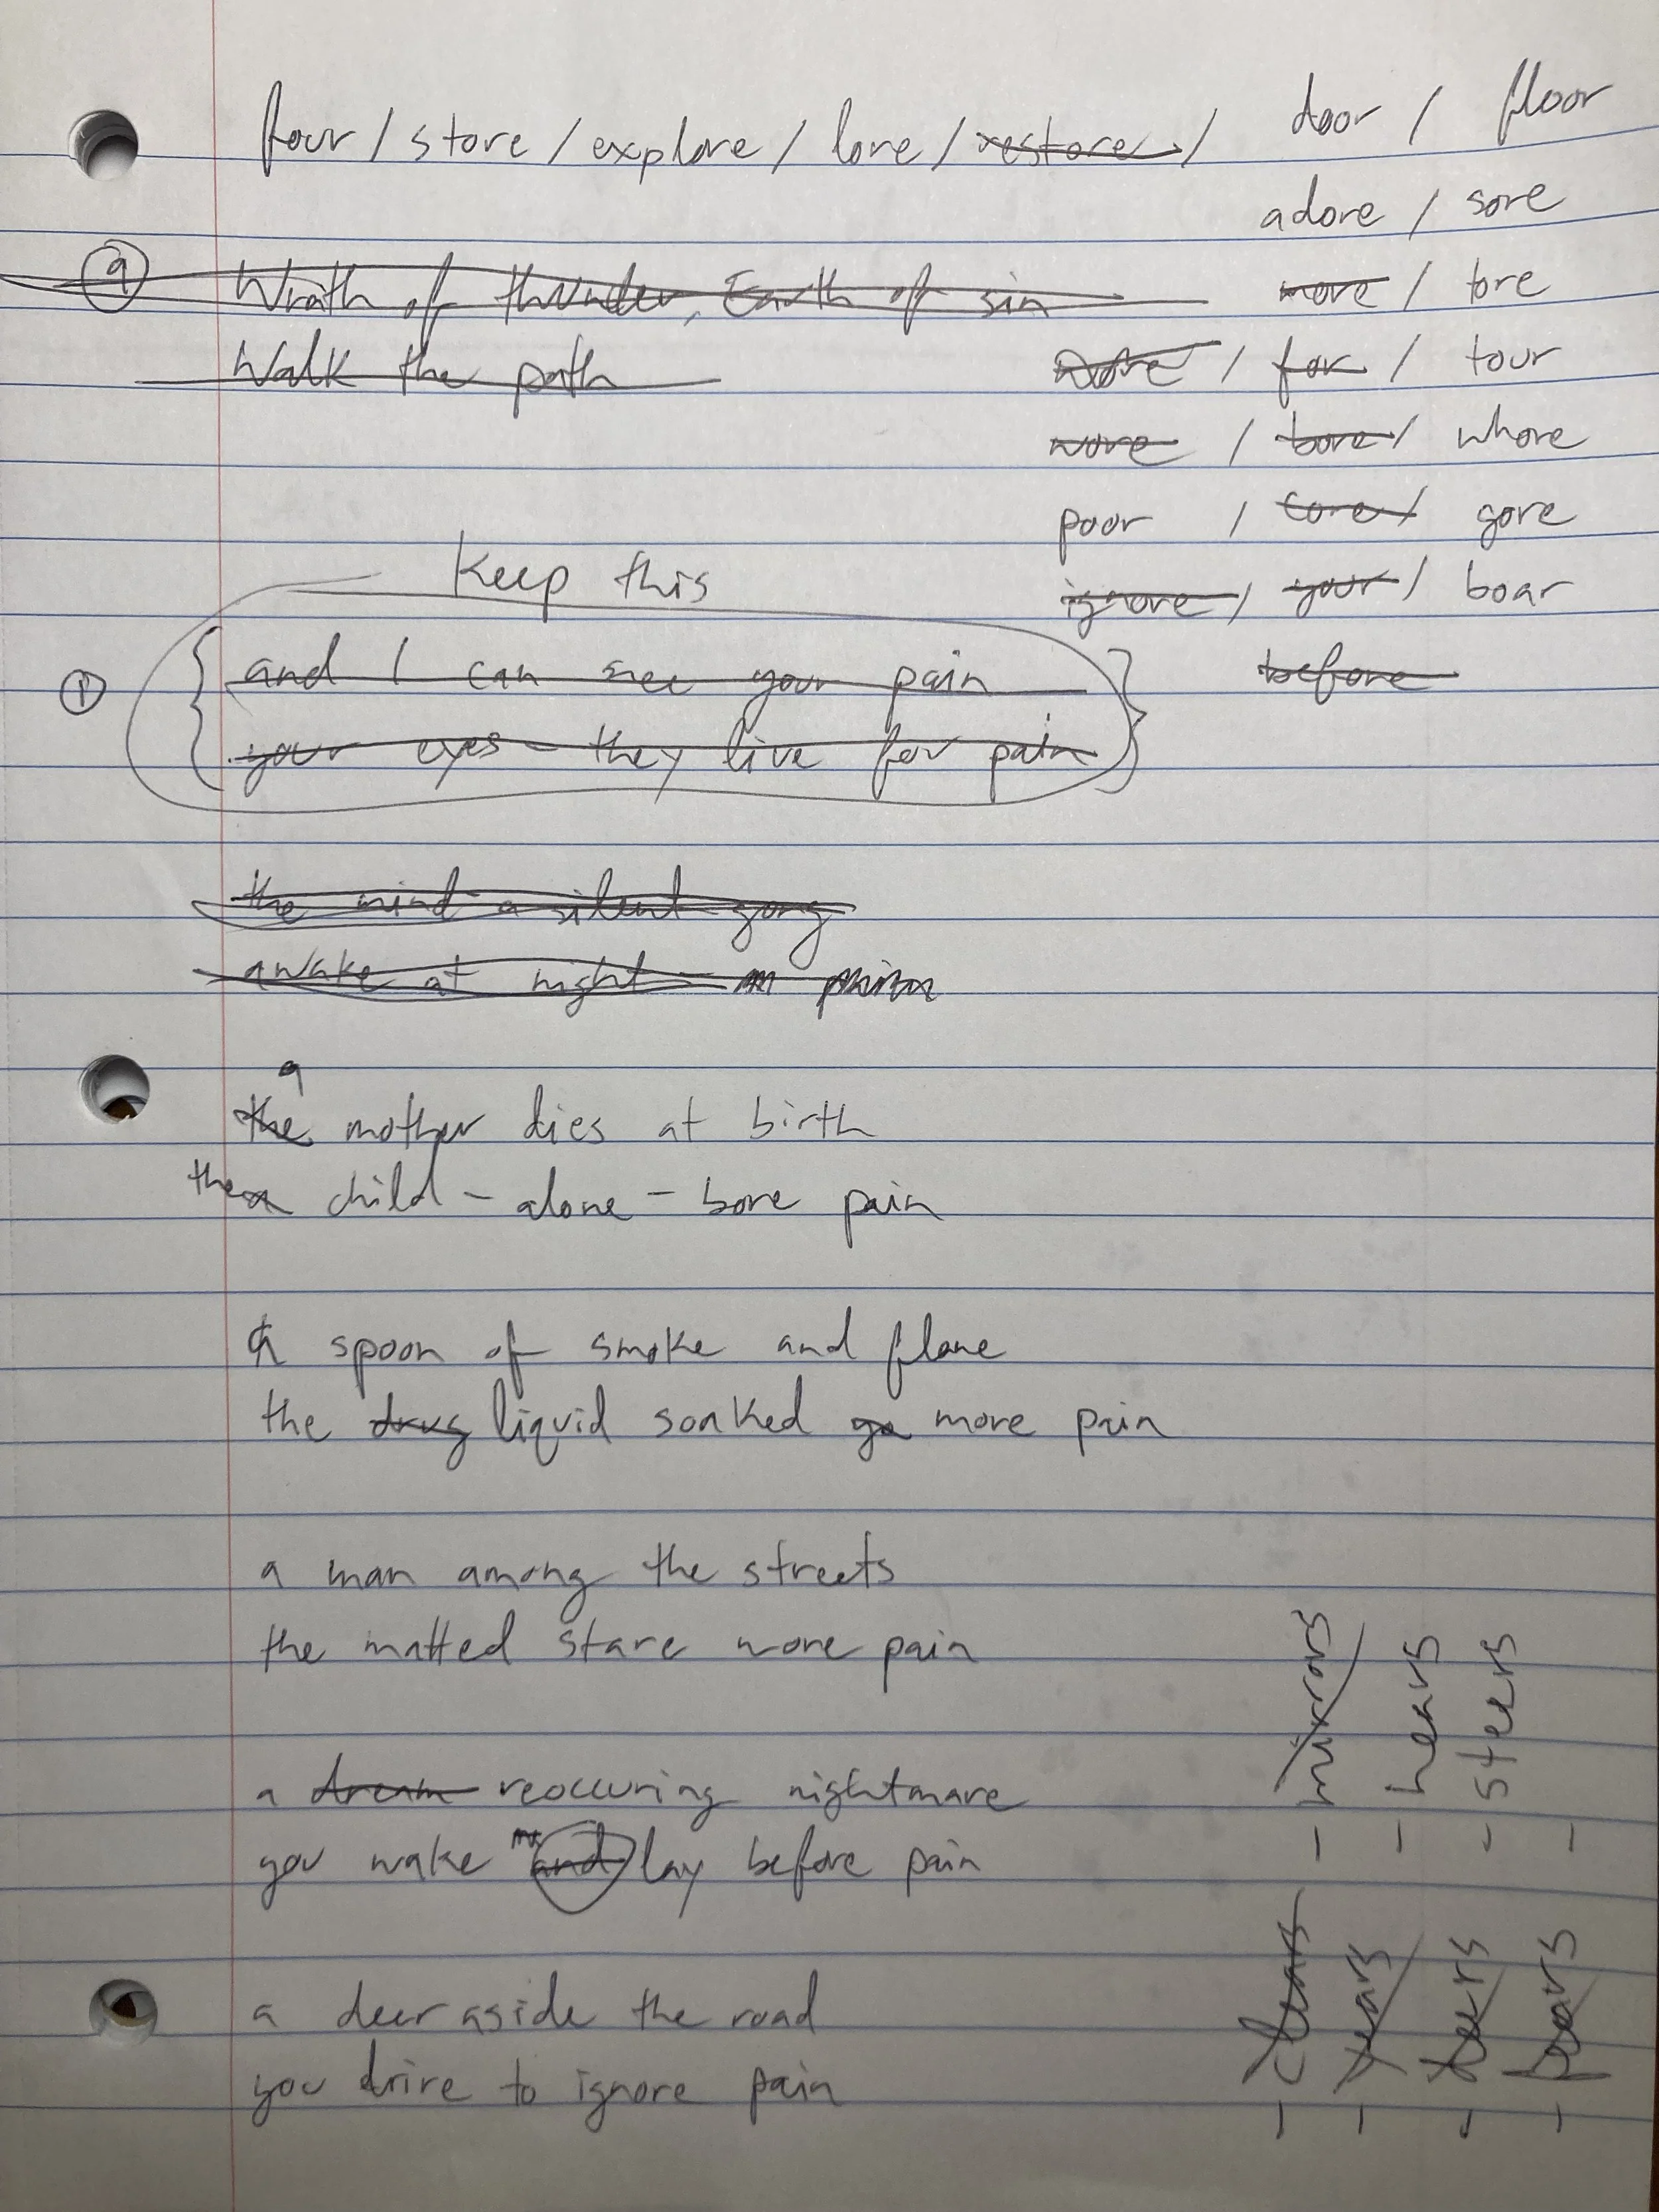 four / store / explore / lore / restore / door / floor
adore / sore
more / tore
for / tour
wore / bore / whore
poor / core / gore
ignore / your / boar
before
9 Wrath of thunder, Earth of sin
Walk the path
Keep this
1 { and I can see your pain }
{ your eyes - they live for pain }
the mind a silent gong
awake at night - in
a
the mother dies at birth
the child - alone - bore pain
a spoon of smoke and flame
the drug liquid soaked go more pain
a man among the streets
the matted stare wore pain
a dream reoccuring nightmare
you wake and lay before pain
a deer aside the road
you drive to ignore pain
- clears - mirrors
- years - hears
- steers
-